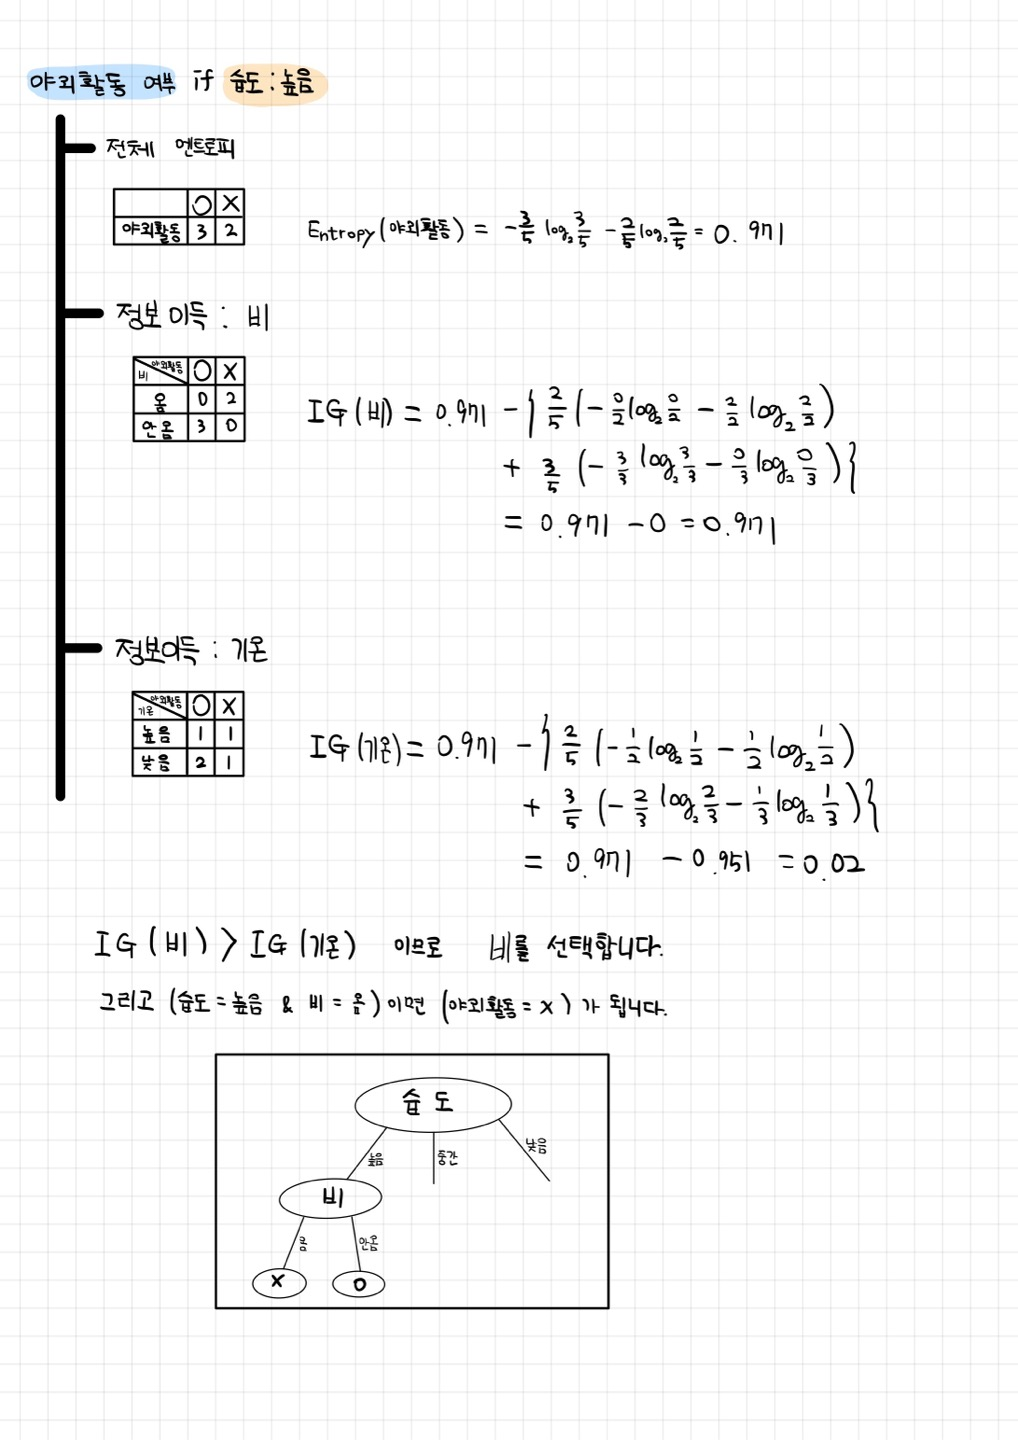 야외활동 여부 if 습도 : 높음
전체 엔트로피
O X
야외활동 3 2
Entropy(야외활동) = -3/5 log₂ 3/5 - 2/5 log₂ 2/5 = 0.971
정보이득 : 비
비 야외활동 O X
옴 0 2
안옴 3 0
IG(비) = 0.971 - { 2/5 (- 0/2 log₂ 0/2 - 2/2 log₂ 2/2)
+ 3/5 (- 3/3 log₂ 3/3 - 0/3 log₂ 0/3) }
= 0.971 - 0 = 0.971
정보이득 : 기온
기온 야외활동 O X
높음 1 1
낮음 2 1
IG(기온) = 0.971 - { 2/5 (- 1/2 log₂ 1/2 - 1/2 log₂ 1/2)
+ 3/5 (- 2/3 log₂ 2/3 - 1/3 log₂ 1/3) }
= 0.971 - 0.951 = 0.02
IG(비) > IG(기온) 이므로 비를 선택합니다.
그리고 (습도=높음 & 비=옴)이면 (야외활동=X)가 됩니다.
습도
높음 중간 낮음
비
옴 안옴
X O